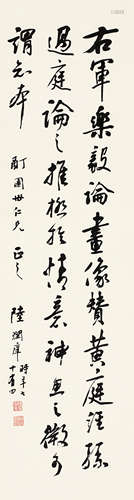 右軍樂毅論畫像贊黃庭經孫
過庭論之推極於情意神思之微可
謂知本
圃世仁兄正之
陸潤庠
時年七
十有四